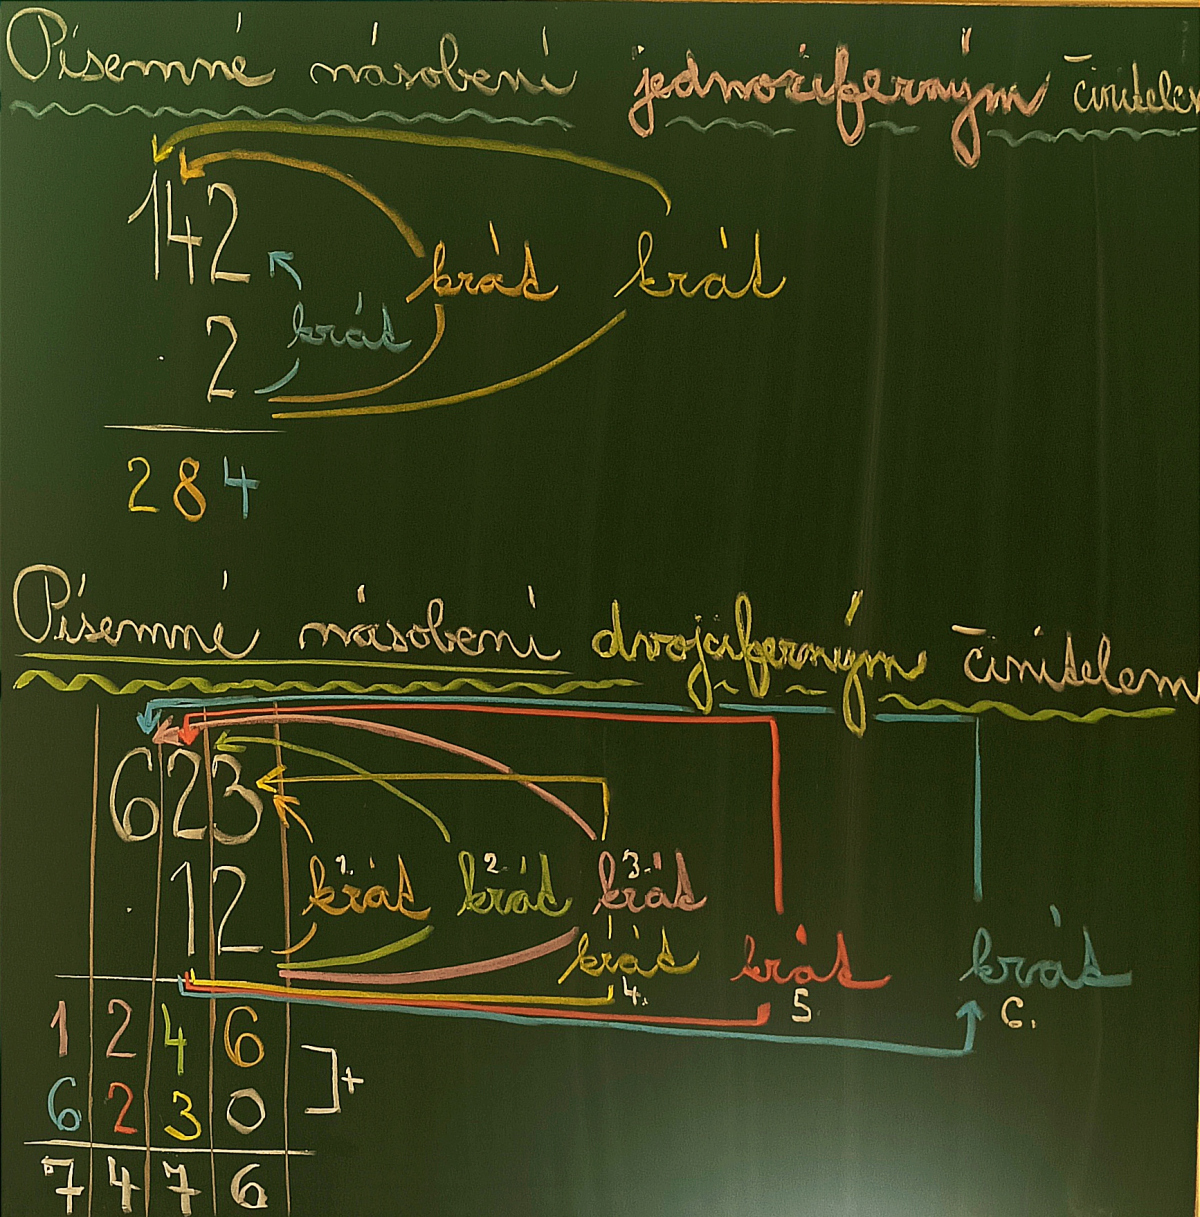 Písemné násobení jednociferným činitelem
142
krát krát krát
. 2
284
Písemné násobení dvojciferným činitelem
623
1. 2. 3.
krát krát krát
. 12
krát krát krát
4. 5. 6.
1246
+
6230
7476